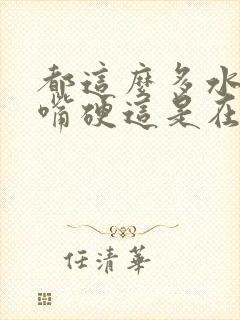 都這麼多水
嘴硬這是在
任清華